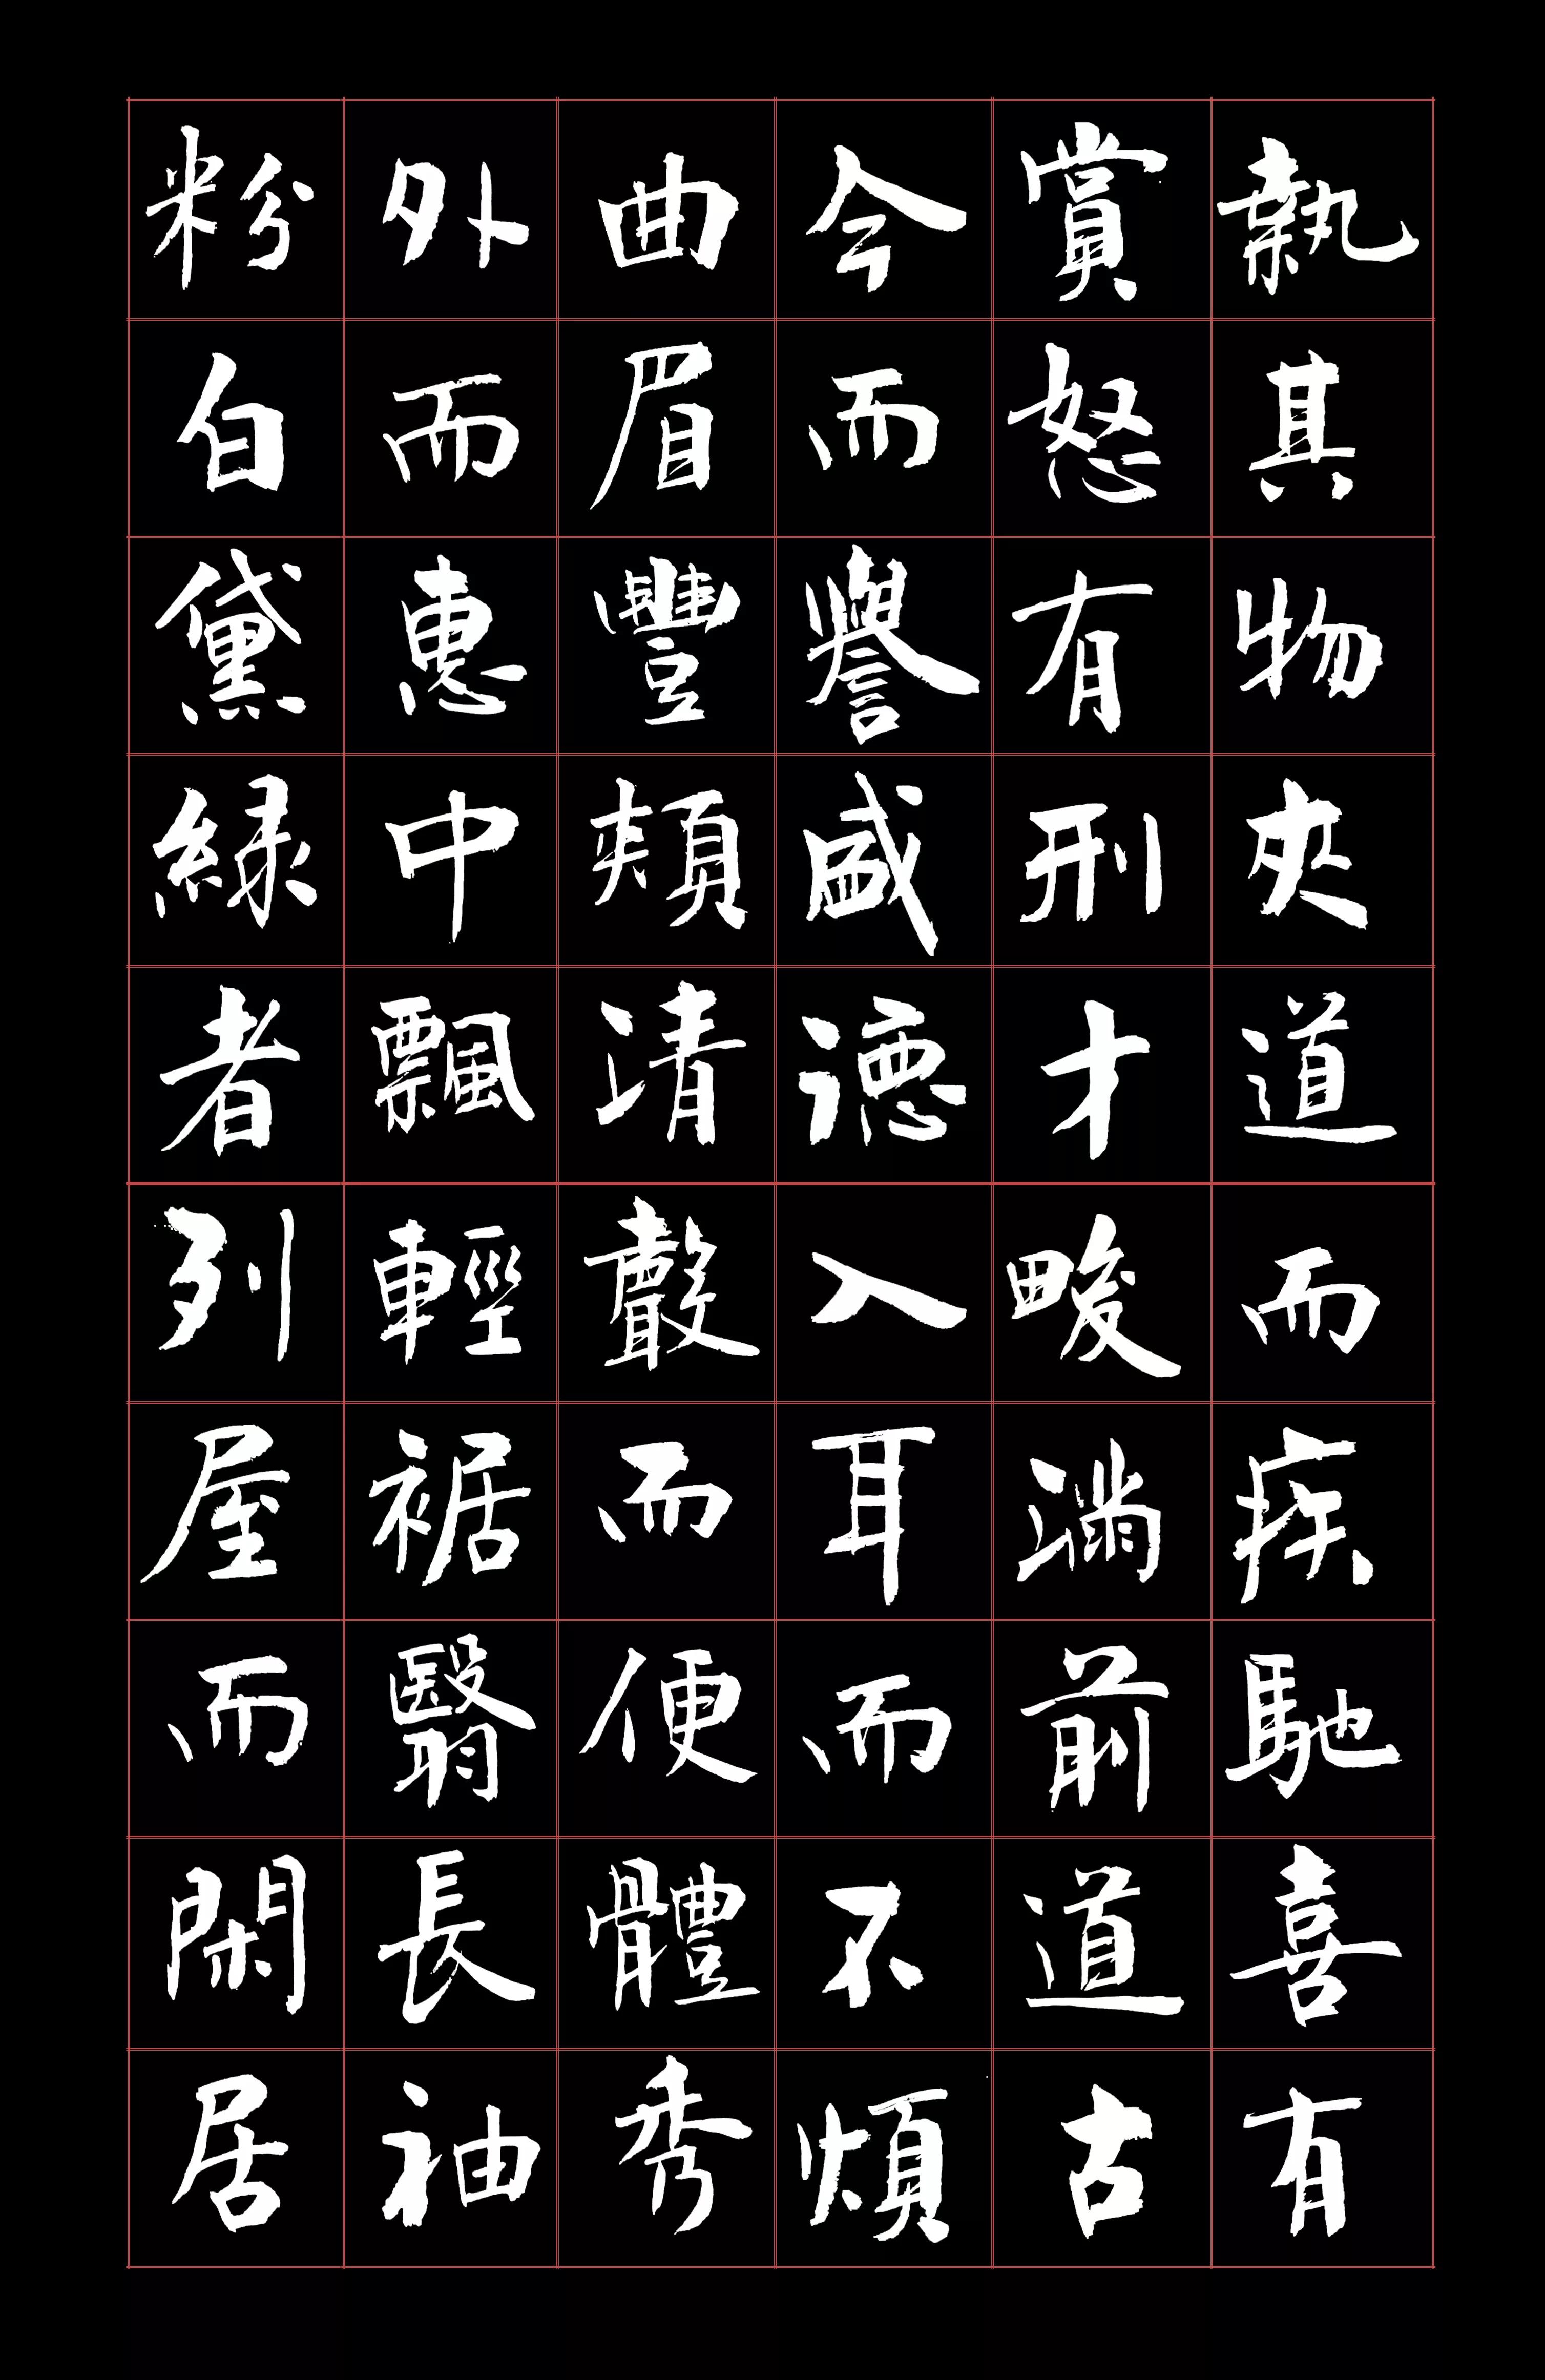 執其物夾道而疾馳喜有
賞怒有刑才畯滿前道古
今而譽盛德入耳而不煩
曲眉豐頰清聲而便體秀
外而惠中飄輕裾翳長袖
粉白黛綠者列屋而閑居